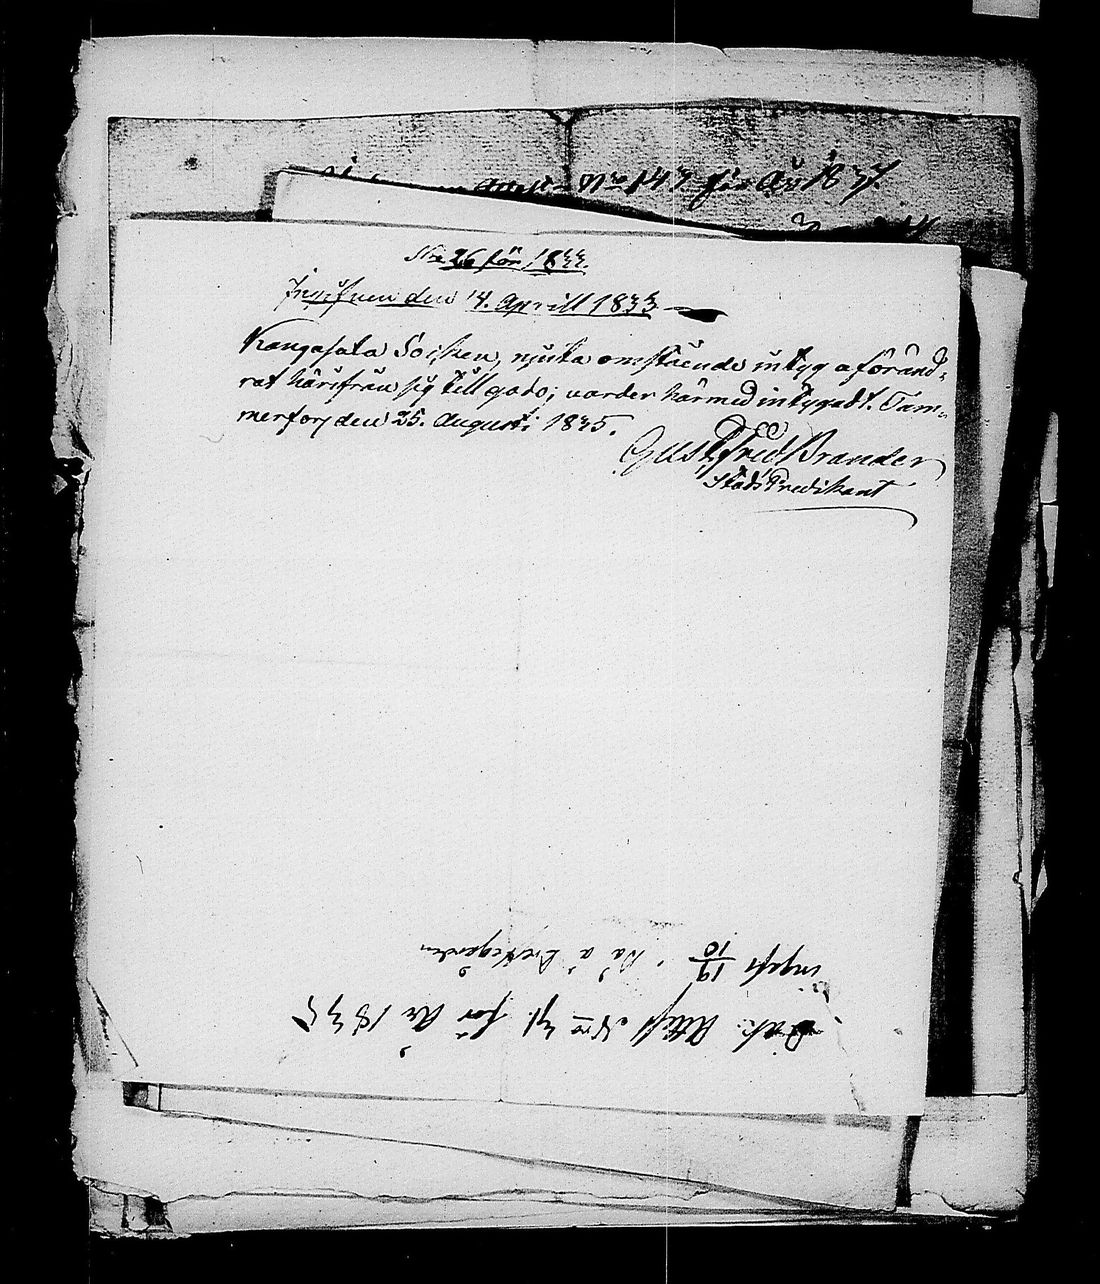 Nro 143 för År 1837.
No 26 för 1833.
Ingifven den 14. Aprill 1833
Kangasala Socken, njuta omstående intyg aföränd,
rat härifrån sig till godo; varder härmed intygadt. Tam,,
merfors den 25. Augusti 1835.
Gust Fred Brander
StadsPredikant
Bet: Attest Nro 31. för År 1835
ingift 19/10